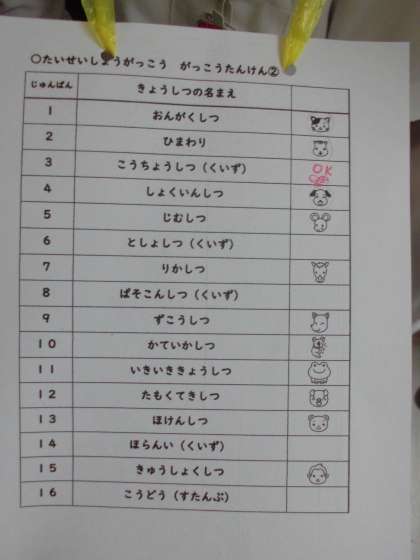 ○たいせいしょうがっこう がっこうたんけん②
じゅんばん きょうしつの名まえ
1 おんがくしつ
2 ひまわり
3 こうちょうしつ（くいず） OK
4 しょくいんしつ
5 じむしつ
6 としょしつ（くいず）
7 りかしつ
8 ぱそこんしつ（くいず）
9 ずこうしつ
10 かていかしつ
11 いきいききょうしつ
12 たもくてきしつ
13 ほけんしつ
14 ほらんい（くいず）
15 きゅうしょくしつ
16 こうどう（すたんぷ）